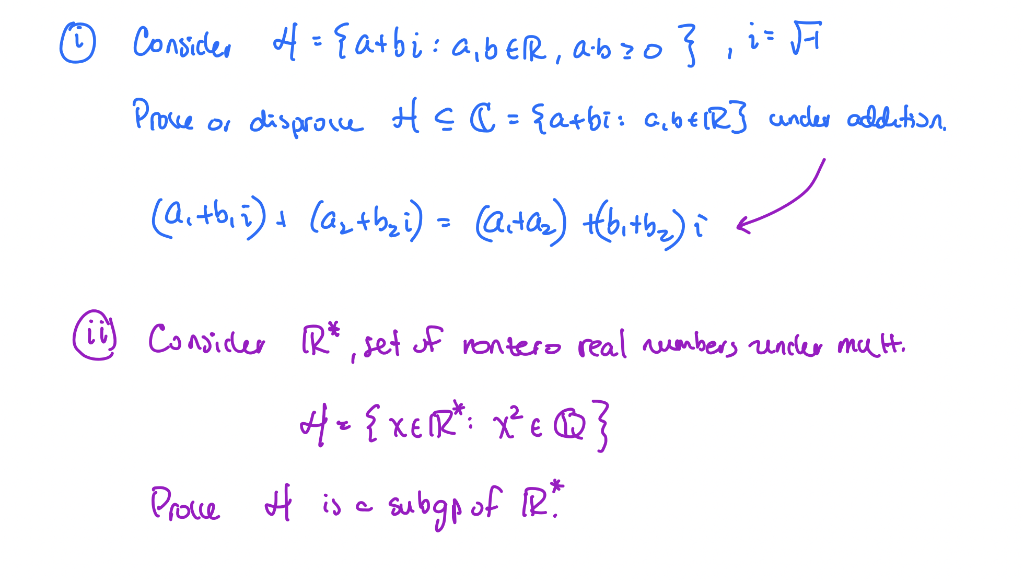 (i) Consider H = {a+bi : a,b ∈ ℝ, a·b ≥ 0}, i = √-1
Prove or disprove H ⊆ ℂ = {a+bi : a,b ∈ ℝ} under addition.
(a₁+b₁i) + (a₂+b₂i) = (a₁+a₂) + (b₁+b₂)i
(ii) Consider ℝ*, set of nonzero real numbers under mult.
H = {x ∈ ℝ* : x² ∈ ℚ}
Prove H is a subgp of ℝ*.